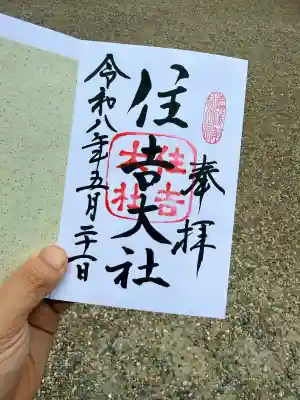 奉拝
住吉大社
住吉
大社
令和八年五月二十一日